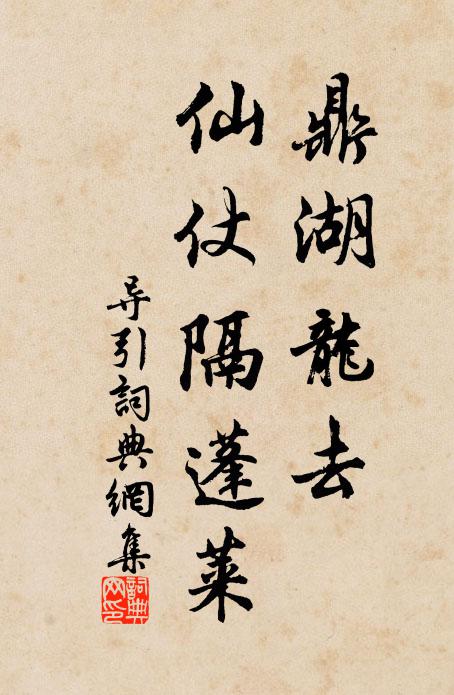 鼎湖龍去
仙仗隔蓬萊
导引詞典網集
詞典
网印